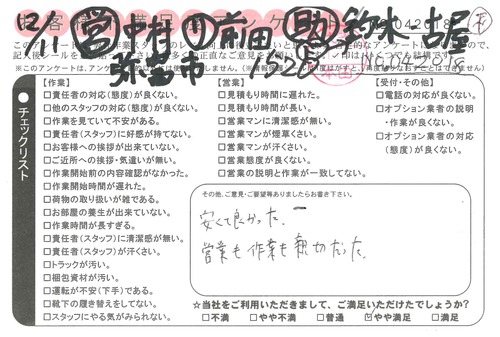 12/1 営 中村 前田 助 鈴木 古屋
弥富市
【作業】
□責任者の対応(態度)が良くない。
□他のスタッフの対応(態度)が良くない。
□作業を見ていて不安がある。
□責任者(スタッフ)に好感が持てない。
□お客様への挨拶が出来ていない。
□ご近所への挨拶・気遣いが無い。
□作業開始前の内容確認がなかった。
□作業開始時間が遅れた。
□荷物の取り扱いが雑である。
□お部屋の養生が出来ていない。
□作業時間が長すぎる。
□責任者(スタッフ)に清潔感が無い。
□責任者(スタッフ)が汗くさい。
□トラックが汚い。
□梱包資材が汚い。
□運転が不安(下手)である。
□靴下の履き替えをしてない。
□スタッフにやる気がみられない。
【営業】
□見積もり時間に遅れた。
□見積もり時間が長い。
□営業マンに清潔感が無い。
□営業マンが煙草くさい。
□営業マンが汗くさい。
□営業態度が良くない。
□営業の説明と作業が一致してない。
【受付・その他】
□電話の対応が良くない。
□オプション業者の説明
・作業が良くない。
□オプション業者の対応
(態度)が良くない。
●チェックリスト
その他、ご意見・ご要望等ありましたらお書き下さい。
安くて良かった。
営業も作業も親切だった。
☆当社をご利用いただきまして、ご満足いただけたでしょうか?
□不満 □やや不満 □普通 ☑やや満足 □満足